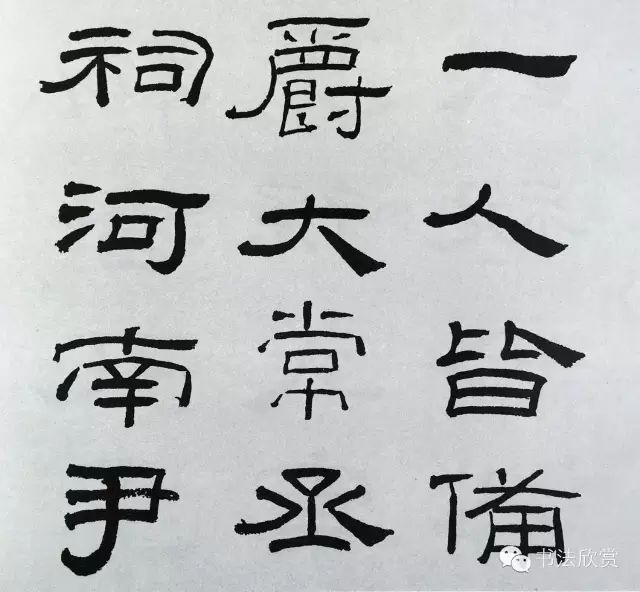 一人皆備
爵大常丞
祠河南尹
书法欣赏